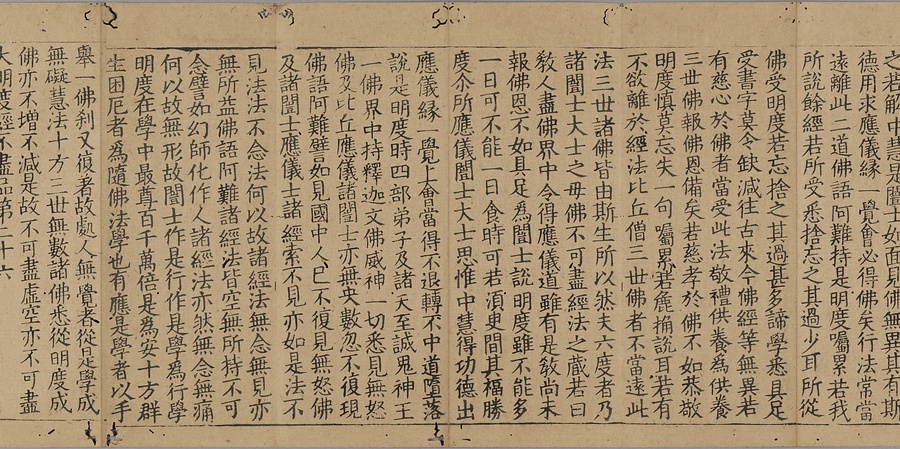 之若解中慧是闓士如面見佛無異其有斯
德用求應儀緣一覺會必得佛矣行法常當
遠離此二道佛語阿難持是明度囑累若我
所說餘經若所受悉捨忘之其過少耳所從
佛受明度若忘捨之其過甚多諦學悉具足
受書字莫令缺減往古來今佛經等無異若
有慈心於佛者當受此法敬禮供養為供養
三世佛報佛恩備矣若慈孝於佛不如恭敬
明度慎莫忘失一句囑累若麁捔說耳若有
不欲離於經法比丘僧三世佛者不當遠此
法三世諸佛皆由斯生所以然夫六度者乃
諸闓士大士之母佛不可盡經法之藏若曰
教人盡佛界中令得應儀道雖有是教尚未
報佛恩不如具足為闓士說明度雖不能多
一日可不能一日食時可若須臾間其福勝
度尒所應儀闓士大士思惟中慧得功德出
應儀緣一覺上會當得不退轉不中道墮落
說是明度時四部弟子及諸天至誠鬼神王
一佛界中持釋迦文佛威神一切悉見無怒
佛及比丘應儀諸闓士亦無央數忽不復現
佛語阿難譬如見國中人已不復見無怒佛
及諸闓士應儀士諸經索不見亦如是法不
見法法不念法何以故諸經法無念無見亦
無所益佛語阿難諸經法皆空無所持不可
念譬如幻師化作人諸經法亦然無念無痛
何以故無形故闓士作是行作是學為行學
明度在學中最尊百千萬倍是為安十方群
生困厄者為隨佛法學也有應是學者以手
舉一佛剎又復著故處人無覺者從是學成
無礙慧法十方三世無數諸佛悉從明度成
佛亦不增不減是故不可盡虛空亦不可盡
大明度經不盡品第二十六